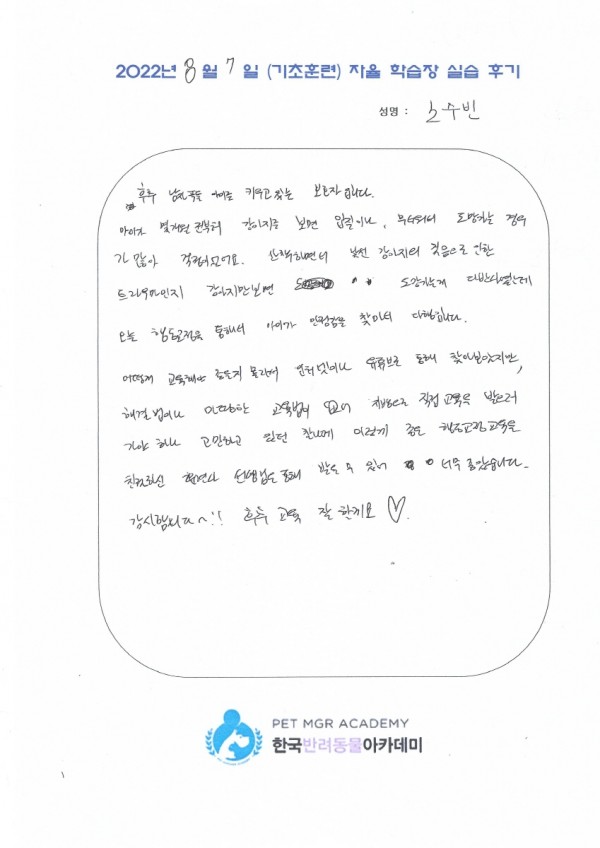 2022년 8월 7일 (기초훈련) 자율 학습장 실습 후기
성명 : 노수빈
후추 키우고 있는 보호자입니다.
아이가 몇개월 전부터 강아지를 보면 입질이나, 무서워서 도망가는 경우
가 많아 걱정이었어요. 산책하면서 낯선 강아지의 짖음으로 인한
트라우마인지 강아지만보면 도망가는게 다반사였는데
오늘 행동교정을 통해서 아이가 안정감을 찾아서 다행입니다.
어떻게 교육해야 좋은지 몰라서 인터넷이나 유튜브를 통해 찾아보았지만,
해결법이나 마땅한 교육법이 없어 직접 교육을 받으러
가야 하나 고민하고 있던 찰나에 이렇게 좋은 행동교정교육을
친절하신 선생님을 통해 받을 수 있어 너무 좋았습니다.
감사합니다~!! 후추 교육 잘 할게요♡.
PET MGR ACADEMY
한국반려동물아카데미